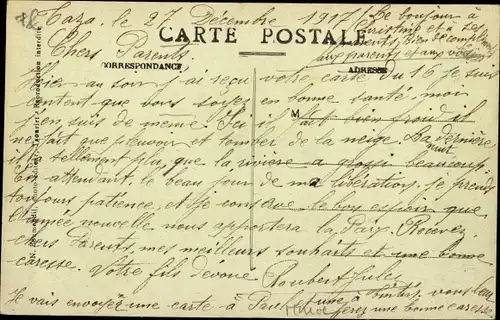 Taza, le 27 Décembre 1917
Le bonjour à
CARTE POSTALE
Chers Parents
parents
aux parents et aux
CORRESPONDANCE
ADRESSE
Hier au soir j'ai reçu votre carte du 16 je suis
content que vous soyez en bonne santé, moi
j'en suis de meme. Ici il fait bien froid il
ne fait que pleuvoir et tomber de la neige. La dernière
nuit
il a tellement plu, que la rivière a grossi beaucoup
En attendant, le beau jour de ma libération, je prend
toujours patience, et je conserve le bon espoir que
l'année nouvelle nous apportera la Paix. Recevez
chers Parents mes meilleurs souhaits et une bonne
caresse. Votre fils dévoué Roubert Jules
Je vais envoyer une carte à une à vous leur
ferez une bonne caresse
Reproduction Interdite